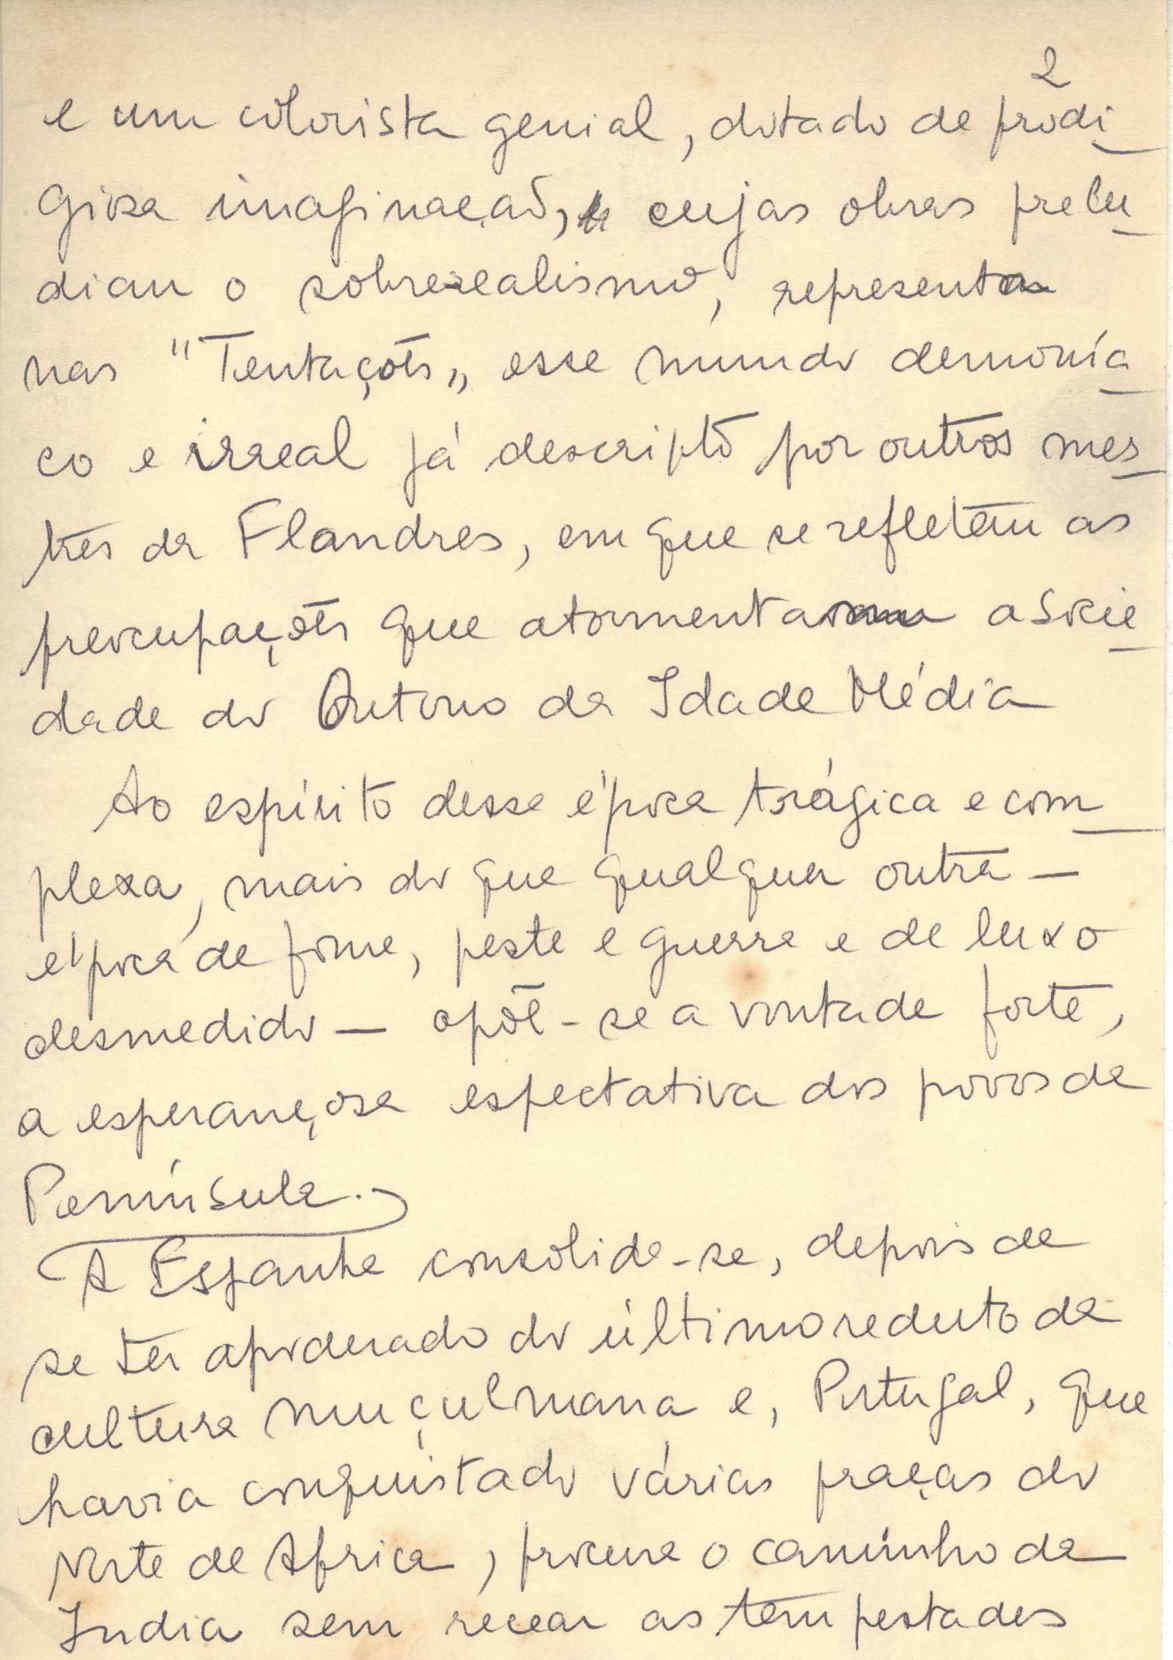 2
e um colorista genial, dotado de prodi
giosa imaginação, cujas obras prelu
diam o sobrerealismo, representa
nas "Tentações„ esse mundo demonía
co e irreal já descripto por outros mes
tres da Flandres, em que se refletem as
preocupações que atormentam a socie
dade do Outono da Idade Média
Ao espírito dessa época trágica e com
plexa, mais do que qualquer outra —
época de fome, peste e guerra e de luxo
desmedido — opõe-se a vontade forte,
a esperançosa espectativa dos povos da
Península.
A Espanha consolida-se, depois de
se ter apoderado do último reduto da
cultura muçulmana e, Portugal, que
havia conquistado várias praças do
Norte de Africa, procura o caminho da
India sem recear as tempestades